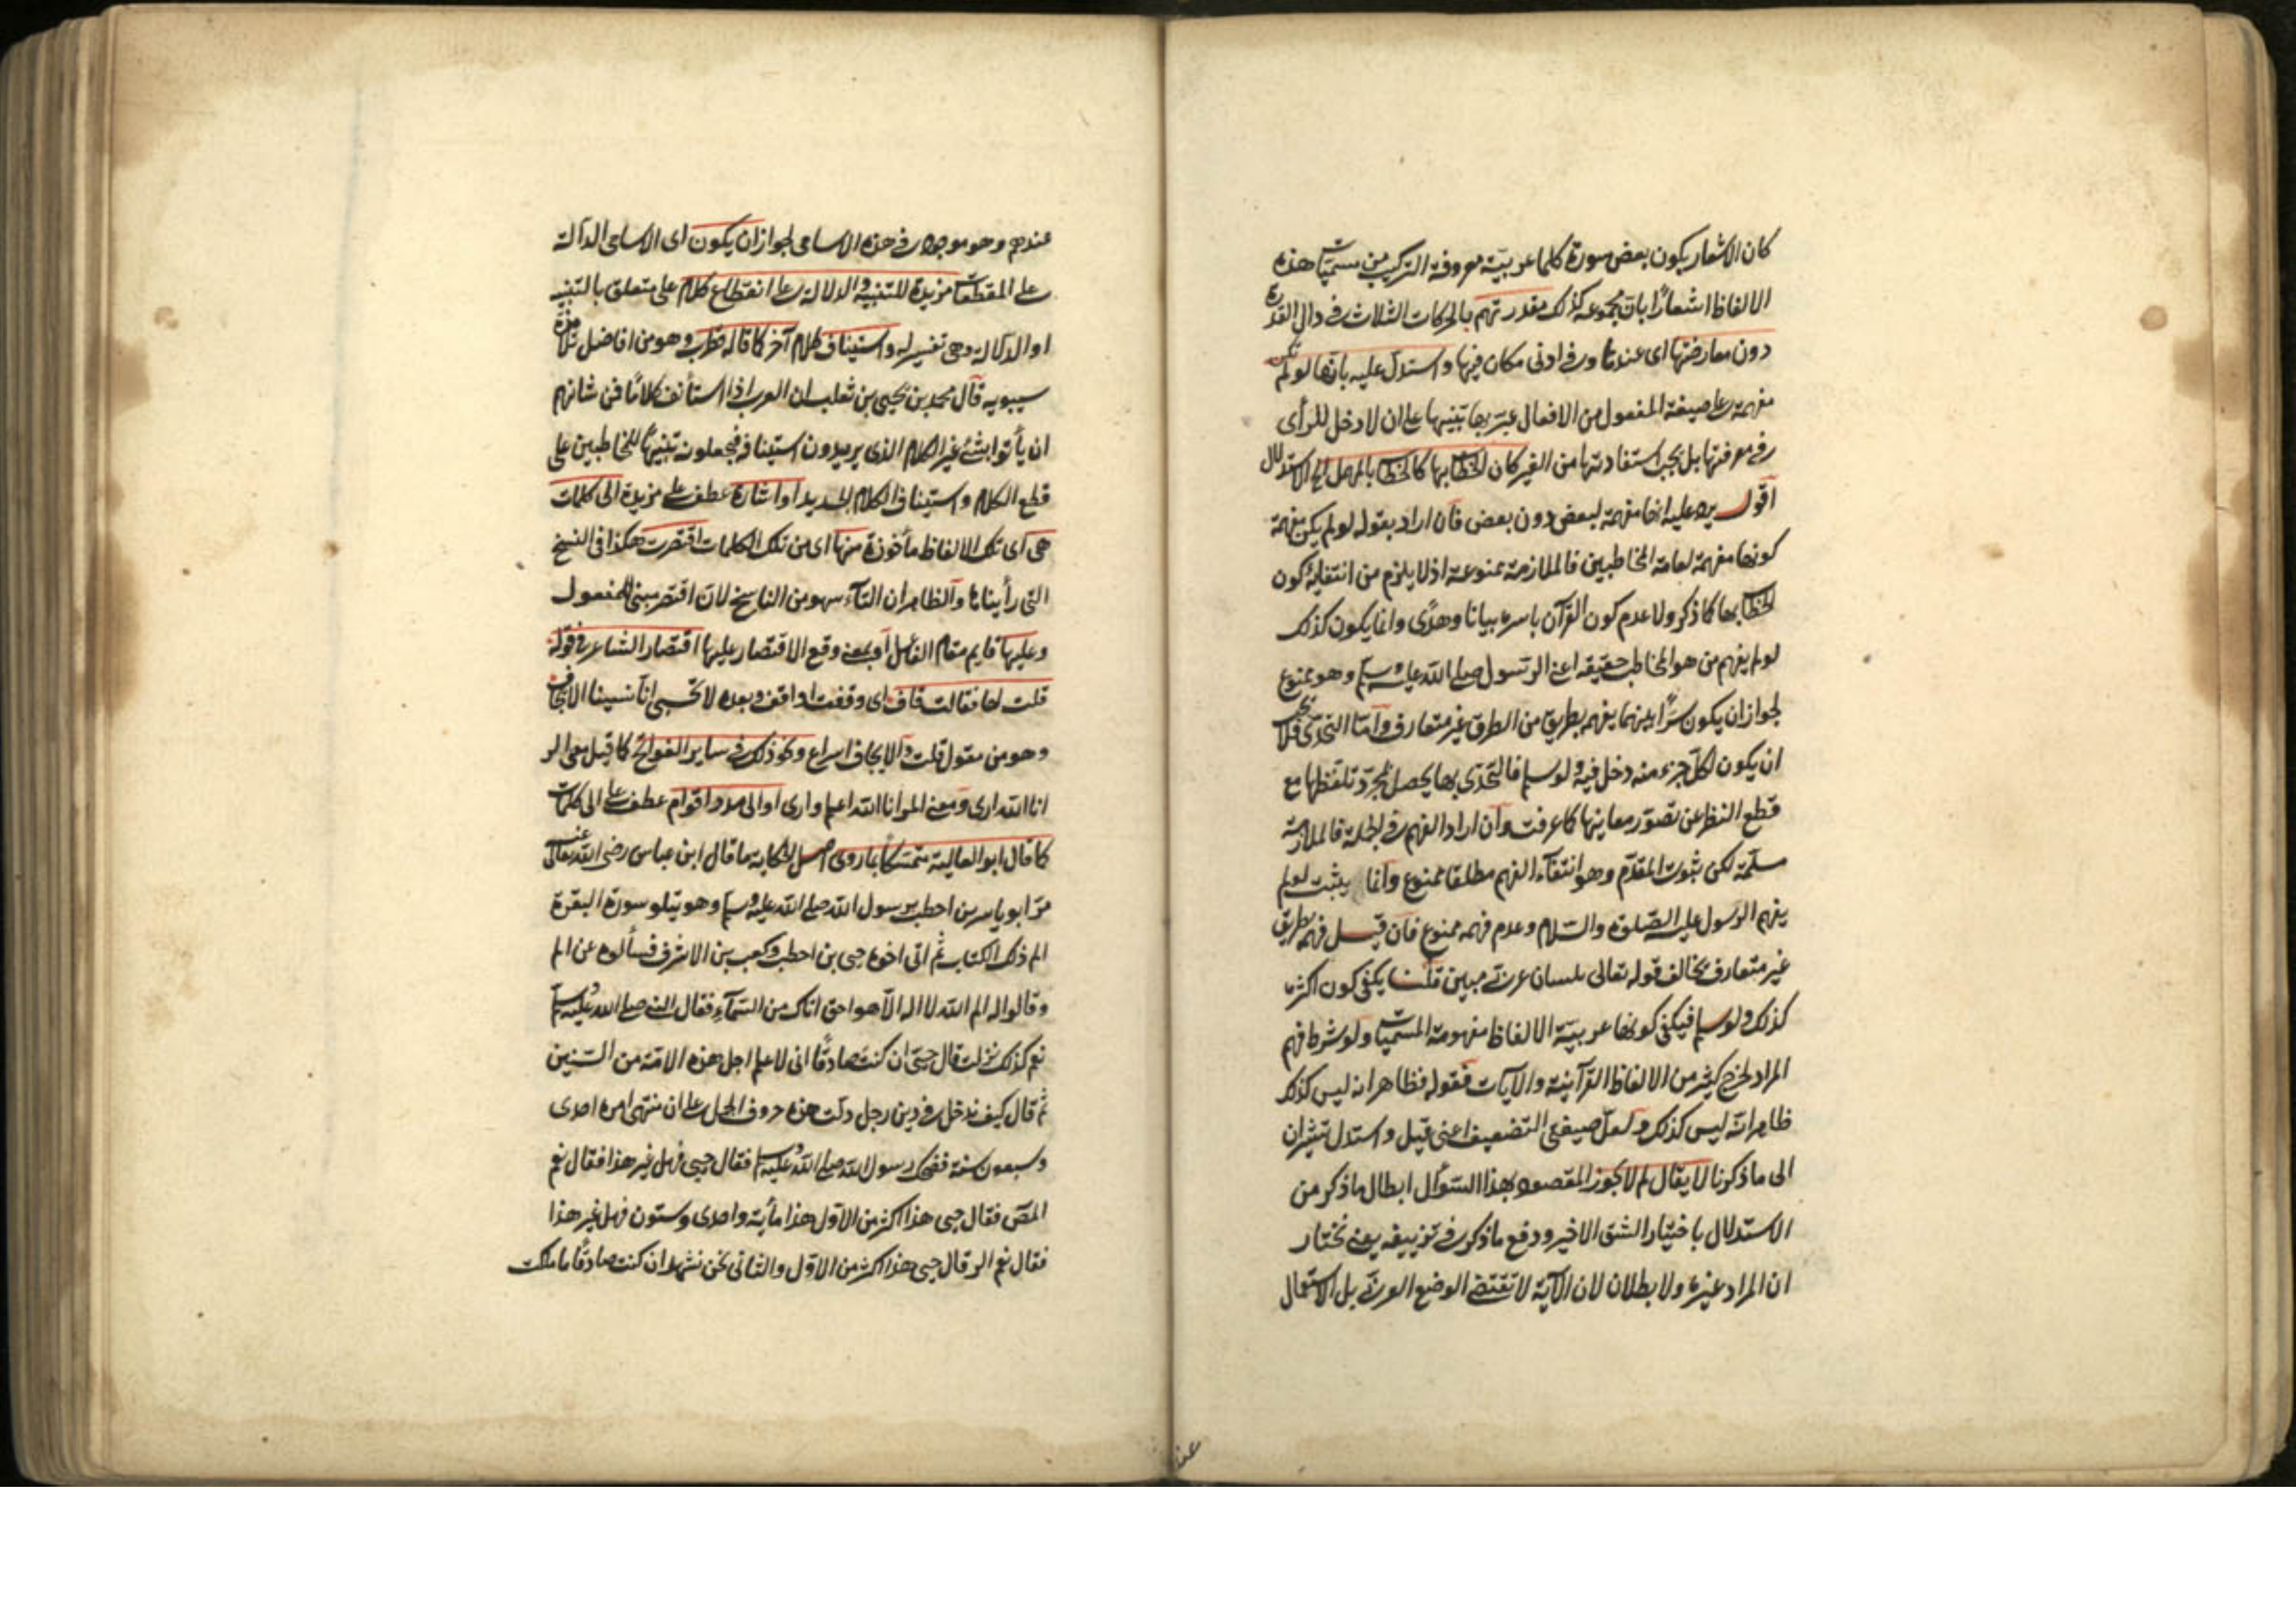 كان الاشعار بكون بعض سورة كلما عربية معروفة التركيب من مسميات هذه
الالفاظ اشعارًا بان مجموعه كذلك مقدرتهم بالحركات الثلاث في دال القدرة
دون معارضتها اى عندها وفي ادنى مكان فيها واستدل عليه بانها لو لم تكن
مفهمة على صيغة المفعول من الافعال عبر بها تنبيها على ان لا دخل للرأى
في معرفتها بل يجب استفادتها من الغير كان الخطاب بها كالخطاب بالمهمل الخ الاستدلال
اقول يرد عليه انها مفهمة لبعض دون بعض فان اراد بقوله لو لم يكن مفهمة
كونها مفهمة لعامة المخاطبين فالملازمة ممنوعة اذ لا يلزم من انتفائه كون
الخطاب بها كما ذكر ولا عدم كون القرآن باسره بيانا وهدًى وانما يكون كذلك
لو لم يفهم من هو المخاطب حقيقة اعنى الرسول صلى الله عليه وسلم وهو ممنوع
لجواز ان يكون سرًّا بينهما يفهم بطريق من الطرق غير متعارف وآما التحدّى فلا يجب
ان يكون لكل جزء منه دخل فيه ولو سلم فالتحدّى بها يحصل بمجرّد تلفظها مع
قطع النظر عن تصوّر معاينها كما عرفت وان اراد الفهم في الجملة فالملازمة
مسلّمة لكن ثبوت المقدّم وهو انتفآء الفهم مطلقا ممنوع وانما يثبت لو لم
يفهم الرسول عليه الصّلوة والسّلام وعدم فهمه ممنوع فان قيل فهمه بطريق
غير متعارف يخالف قوله تعالى بلسان عربىّ مبين قلنا يكفى كون اكثره
كذلك ولو سلم فيكفى كونها عربيّة الالفاظ مفهومة المسميات ولو شرط فهم
المراد لخرج كثير من الالفاظ القرآنية والآيات فقوله فظاهر انه ليس كذلك
ظاهر انّه ليس كذلك ولعلّ صيغتى التضعيف اعنى قيل واستدل تشيران
الى ما ذكرنا لا يقال لم لا يجوز المقصود بهذا السّؤال ابطال ما ذكر من
الاستدلال باختيار الشق الاخير ودفع ما ذكر في تزييفه يعنى نختار
ان المراد غيره ولا بطلان لان الآية لا تقتضى الوضع العربىّ بل الاستعمال
عند
عندهم وهو موجود في هذه الاسامى لجواز ان يكون اى الاسامى الدآلة
على المقطعات مزيدة للتنبيه والدلالة على انقطاع كلام على متعلق بالتنبيه
او الدلالة وهى تفسير له واستيناف كلام آخر كما قاله قطرب وهو من افاضل تلامذة
سيبويه قال محمد بن يحيى بن ثعلب ان العرب اذا استأنف كلامًا فمن شانهم
ان يأتوا بشئ غير الكلام الذى يريدون استينافه فيجعلونه تنبيهًا للمخاطبين على
قطع الكلام واستيناف الكلام الجديد او اشارة عطف على مزيدة الى كلمات
هى اى تلك الالفاظ مأخوذة منها اى من تلك الكلمات اقتصرت هكذا في النسخ
التى رأيناها والظاهر ان التآء سهو من الناسخ لان اقتصر مبنى للمفعول
وعليها قايم مقام الفاعل او بمعنى وقع الاقتصار عليها اقتصار الشاعر في قوله
قلت لها فقالت قاف اى وقفت او اقف وبعده لا تحسبى انّا نسينا الايجاف
وهو من مقول قلت والايجاف اسراع وكذلك في ساير الفواتح كما قيل معنى الر
انا الله ارى ومعنى المر انا الله اعلم وارى او الى مدد اقوام عطف على الى كلمات
كما قال ابو العالية متمسّكًا بما روى اصل الحكاية ما قال ابن عباس رضى الله تعالى عنه
مرّ ابو ياسر بن احطب برسول الله صلى الله عليه وسلم وهو يتلو سورة البقرة
الم ذلك الكتاب ثم اتى اخوه حيى بن احطب وكعب بن الاشرف فسألوه عن الم
وقالوا له الم الله لا اله الاّ هو احق اتاك من السّمآء فقال النبى صلى الله عليه وسلم
نعم كذلك نزلت قال حيىّ ان كنت صادقًا انى لاعلم اجل هذه الامّة من السّنين
ثم قال كيف ندخل في دين رجل دلّت هذه حروف الجمل على ان منتهى امره احدى
وسبعون سنة فضحك رسول الله صلى الله عليه وسلم فقال حيى فهل غير هذا فقال نعم
المصۤ فقال حيى هذا اكثر من الاوّل هذا مأية واحدى وستون فهل غير هذا
فقال نعم الر قال حيى هذا اكثر من الاوّل والثانى نحن نشهد ان كنت صادقًا ما ملكت